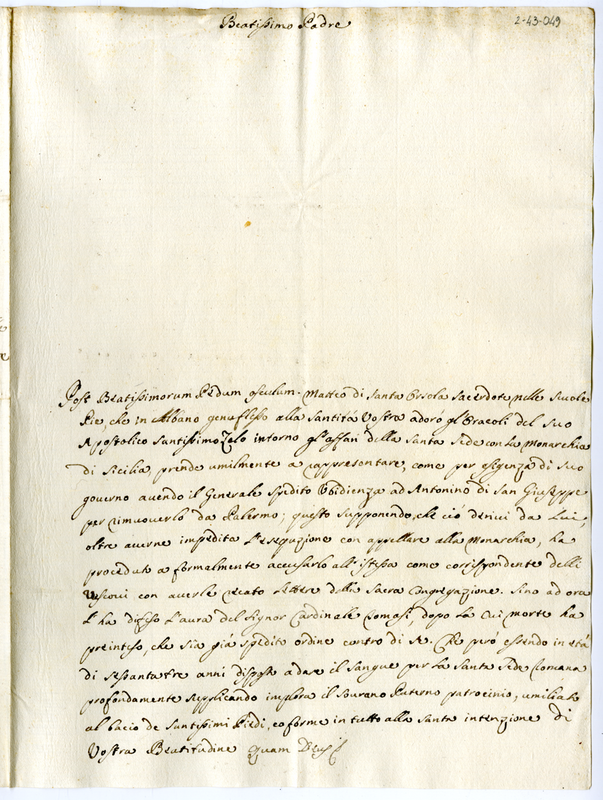 Beatissimo Padre
2-43-049
Post Beatissimorum Pedum osculum. Matteo di Santa Orsola Sacerdote nelle Scuole
Pie, che in Albano genuflesso alla Santità Vostra adorò gl'Oracoli del Suo
Apostolico Santissimo Zelo intorno gl'affari della Santa Sede con la Monarchia
di Sicilia, prende umilmente a rappresentare, come per esigenza di Suo
governo avendo il Generale spedito Ubidienza ad Antonino di San Giuseppe
per rimuoverlo da Palermo; questo supponendo, che ciò derivi da Lui,
oltre averne impedita l'esequzione con appellare alla Monarchia, ha
proceduto a formalmente accusarlo all'istessa come corrispondente delli
Vescovi con averle recato lettere della Sacra Congregazione. Sino ad ora
l'ha difeso l'aura del Signor Cardinale Tomasi, dopo la cui morte ha
preinteso, che sia già spedito ordine contro di se. Che però essendo in età
di sessantatre anni disposto a dare il sangue per la Santa Sede Romana
profondamente supplicando implora il Sovrano Paterno patrocinio, umiliato
al bacio de Santissimi Piedi, e conforme in tutto alla Santa intenzione di
Vostra Beatitudine quam Deus